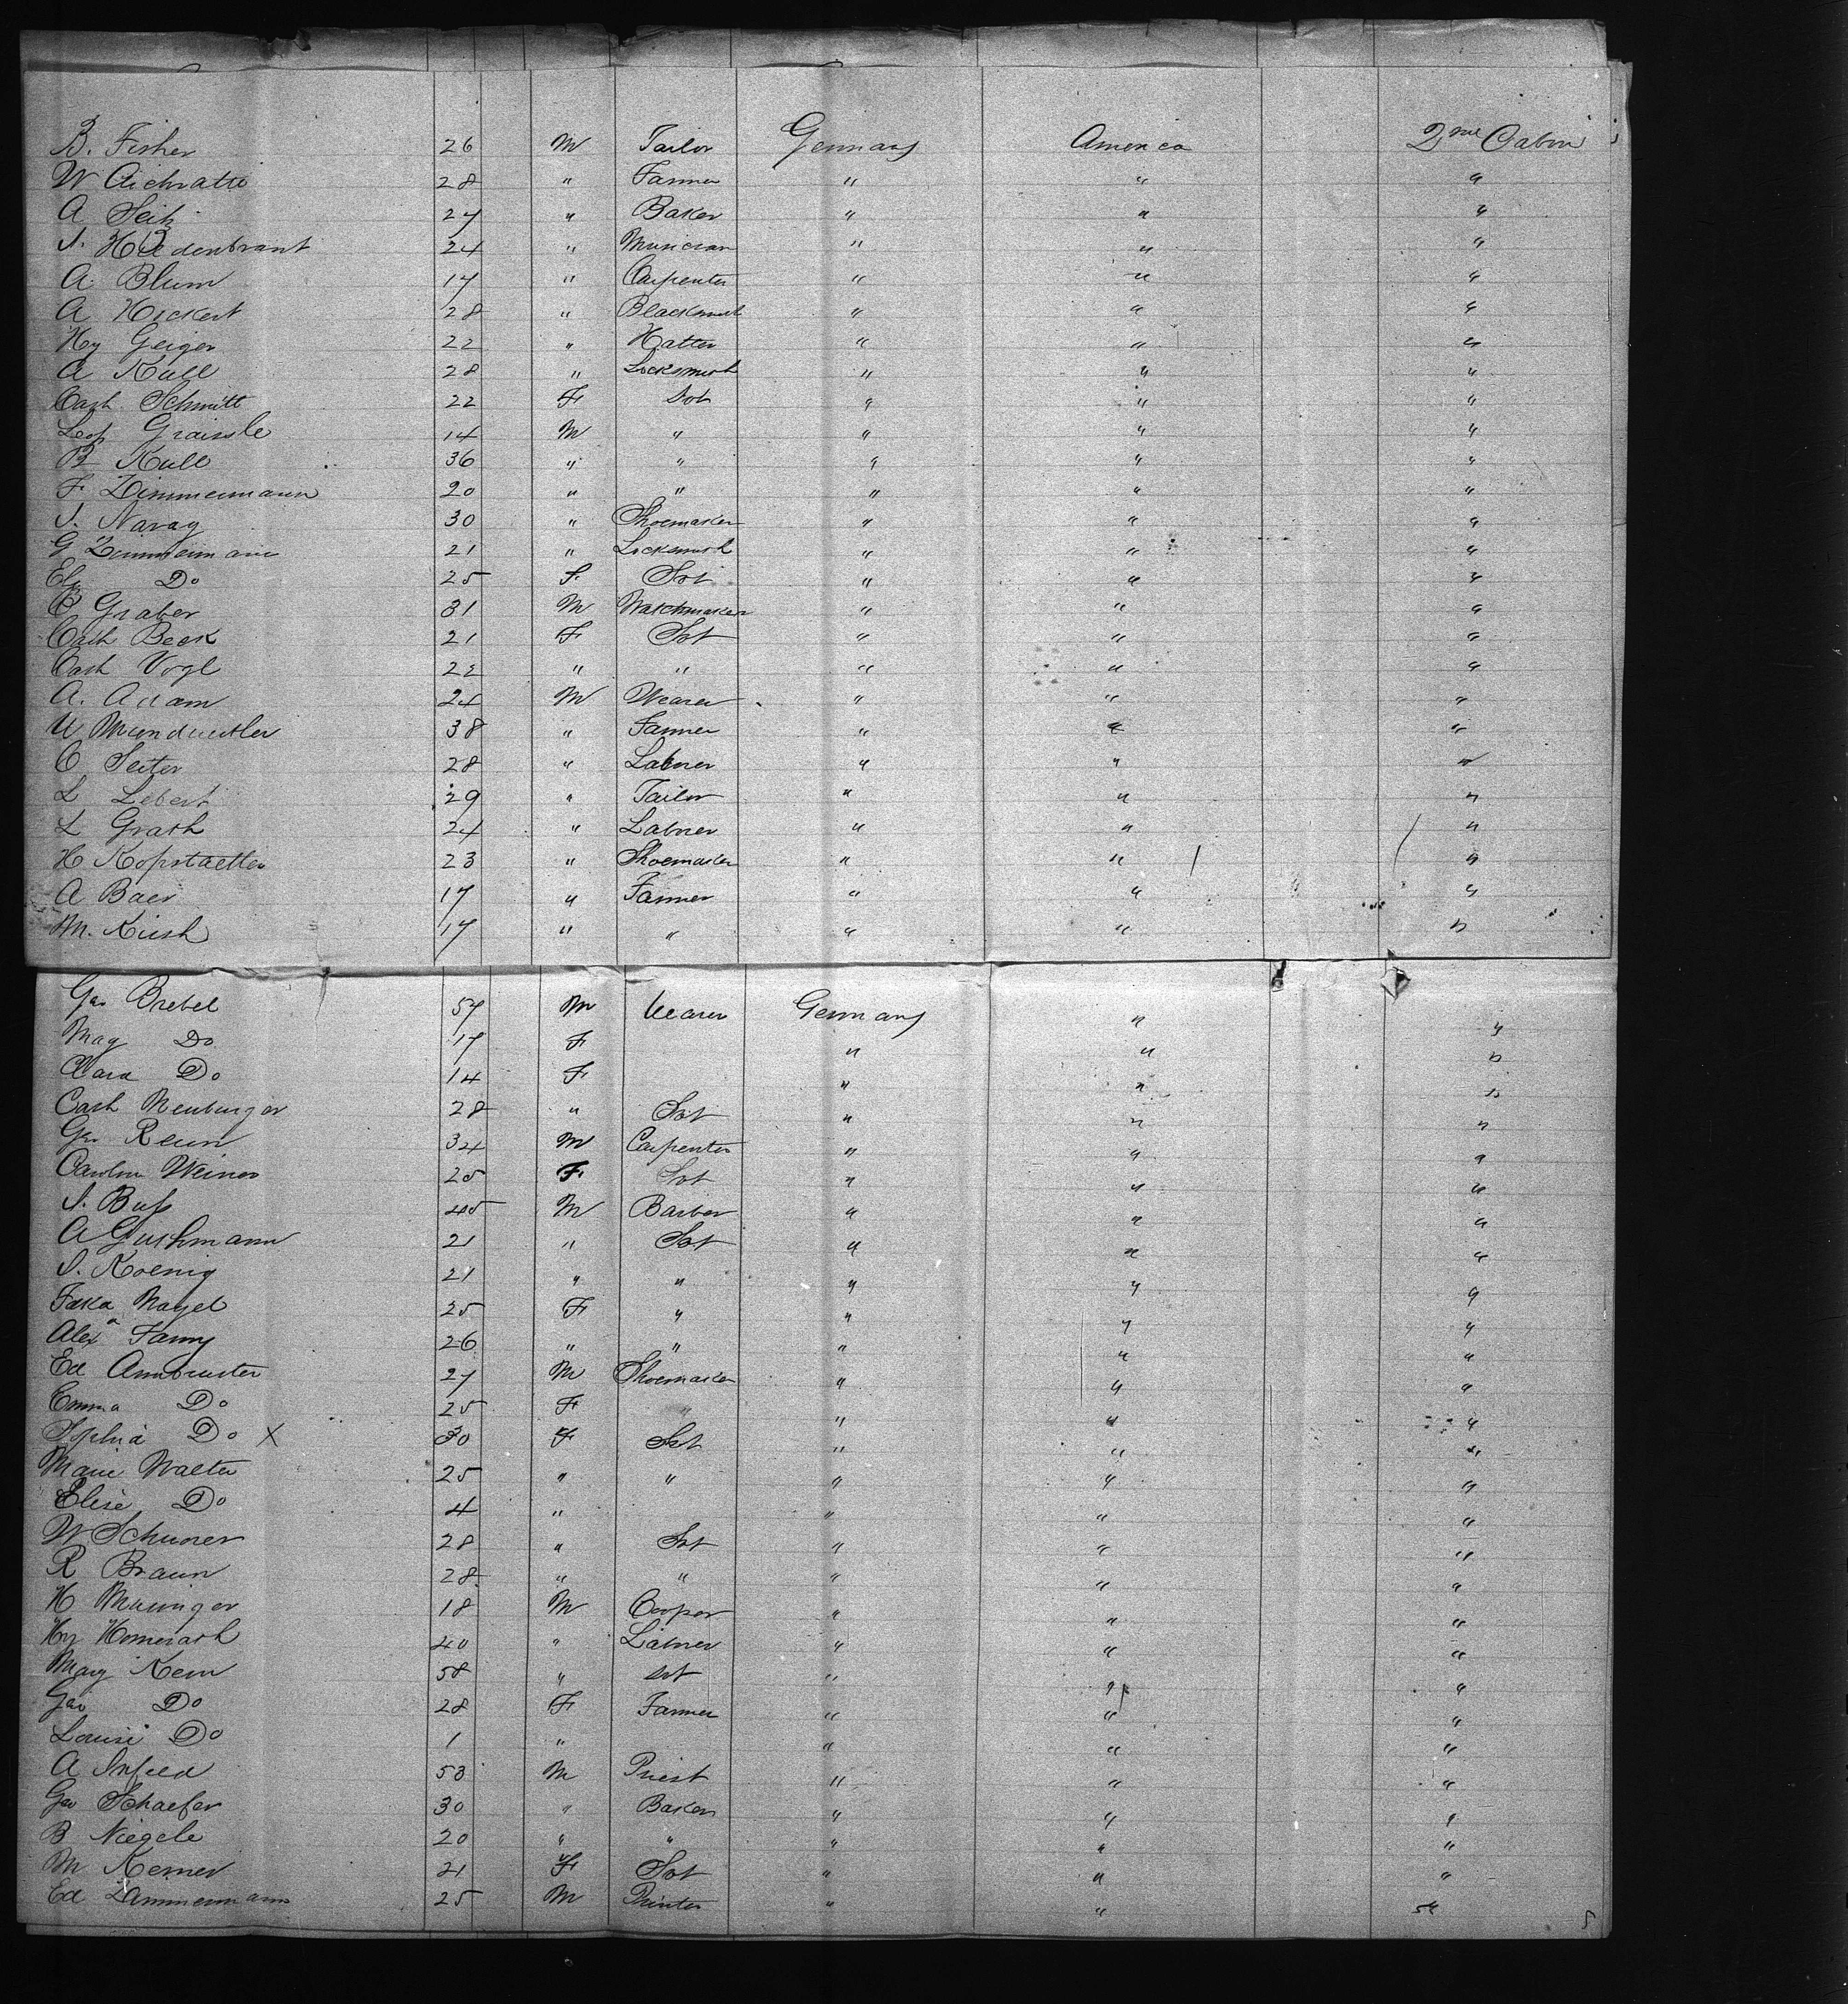 B. Fisher 26 M Tailor Germany America 2nd Cabin
W Aichratte 28 " Farmer " " "
A Seitz 27 " Baker " " "
J. Hildenbrant 24 " Musician " " "
A. Blum 17 " Carpenter " " "
A Hickert 28 " Blacksmith " " "
Hy Geiger 22 " Hatter " " "
A Kull 28 " Locksmith " " "
Cath Schmitt 22 F Svt " " "
Leop Graissle 14 M " " " "
B Kull 36 " " " " "
F Zimmermann 20 " " " " "
J. Navag 30 " Shoemaker " " "
G Zimmermann 21 " Locksmith " " "
Elz Do 25 F. Svt " " "
C Graber 31 M Watchmaker " " "
Cath Beck 21 F Svt " " "
Cath Vogl 22 " " " " "
A. Adam 24 M Weaver " " "
U 38 " Farmer " " "
C Seiter 28 " Laborer " " "
L Lebert 29 " Tailor " " "
L Grath 24 " Laborer " " "
H Kopstaetter 23 " Shoemaker " " "
A Baer 17 " Farmer " " "
M. Kirsh 17 " " " " "
Geo Brebel 57 M Weaver Germany " "
Mag Do 17 F " " "
Clara Do 14 F " " "
Cath Neuburger 28 " Svt " " "
Geo Reun 34 M Carpenter " " "
Carolin Weiner 25 F Svt " " "
J. Buss 45 M Barber " " "
A Gushmann 21 " Svt " " "
J. Koenig 21 " " " " "
Nagel 25 F " " " "
Alexa Fanny 26 " " " " "
Ed Armbruster 27 M Shoemaker " " "
Emma Do 25 F " " " "
Sophia Do X 30 F Svt " " "
Marie Walter 25 " " " " "
Elise Do 4 " " " "
W Schurer 28 " Svt " " "
R Braun 28 " " " " "
H Maninger 18 M Cooper " " "
Hy Homerash 40 " Laborer " " "
Mary Kern 58 " svt " " "
Geo Do 28 F Farmer " " "
Louise Do 1 " " " "
A 53 M Priest " " "
Geo Schaefer 30 " Baker " " "
B Niegele 20 " " " " "
M Kerner 21 F Svt " " "
Ed Zimmermann 25 M Printer " " 54